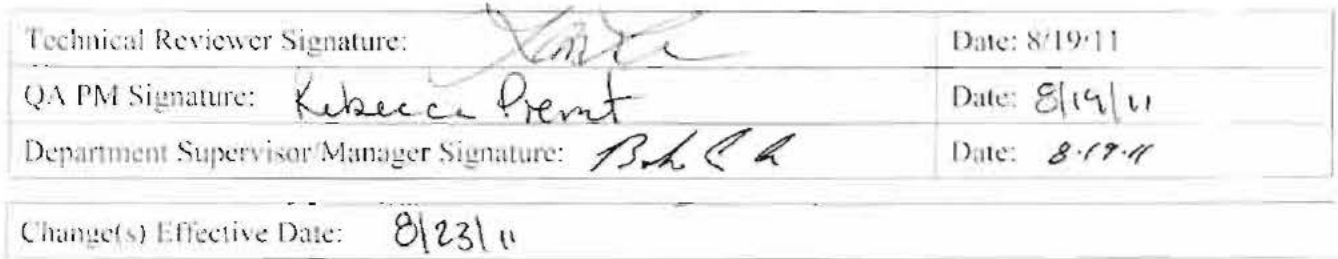 Technical Reviewer Signature: Date: 8/19/11
QA PM Signature: Rebecca Date: 8/19/11
Department Supervisor/Manager Signature: Date: 8-19-11
Change(s) Effective Date: 8/23/11